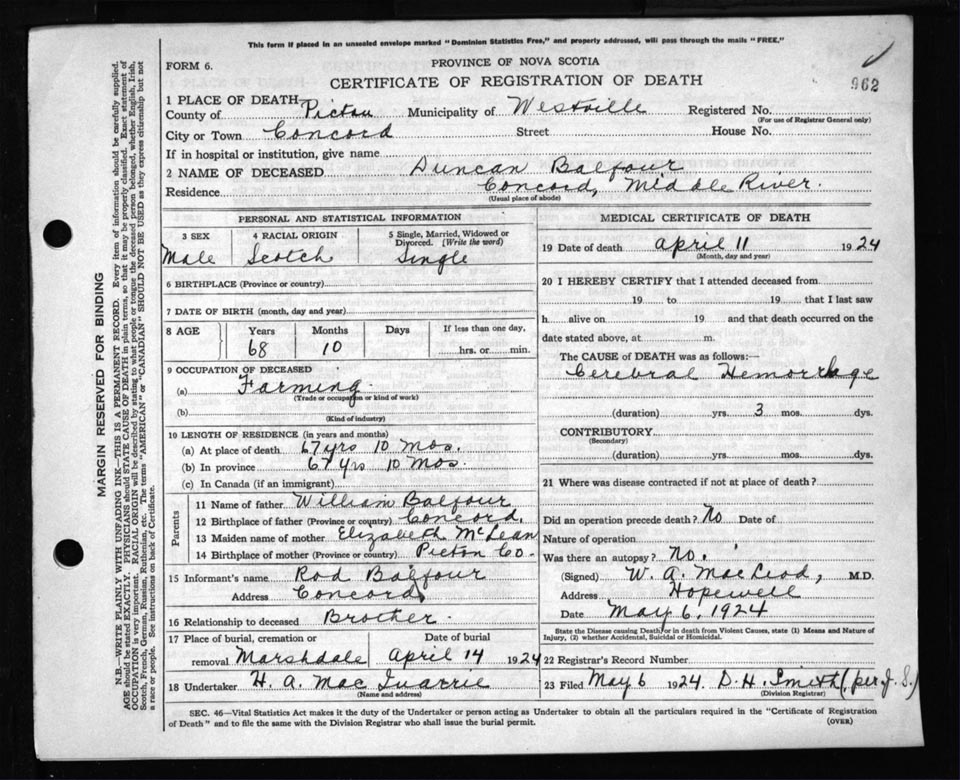 This form if placed in an unsealed envelope marked "Dominion Statistics Free," and properly addressed, will pass through the mails "FREE."
FORM 6.
PROVINCE OF NOVA SCOTIA
CERTIFICATE OF REGISTRATION OF DEATH
962
1 PLACE OF DEATH
County of Pictou Municipality of Westville Registered No.
(For use of Registrar General only)
City or Town Concord Street House No.
If in hospital or institution, give name
2 NAME OF DECEASED Duncan Balfour
Residence Concord, Middle River.
(Usual place of abode)
PERSONAL AND STATISTICAL INFORMATION
3 SEX 4 RACIAL ORIGIN 5 Single, Married, Widowed or Divorced. (Write the word)
Male Scotch Single
6 BIRTHPLACE (Province or country)
7 DATE OF BIRTH (month, day and year)
8 AGE Years Months Days If less than one day,
68 10 hrs. or min.
9 OCCUPATION OF DECEASED
(a) Farming
(Trade or occupation or kind of work)
(b)
(Kind of industry)
10 LENGTH OF RESIDENCE (in years and months)
(a) At place of death 67 yrs 10 mos.
(b) In province 67 yrs 10 mos.
(c) In Canada (if an immigrant)
Parents
11 Name of father William Balfour
12 Birthplace of father (Province or country) Concord,
13 Maiden name of mother Elizabeth McLean
14 Birthplace of mother (Province or country) Picton Co.
15 Informant's name Rod Balfour
Address Concord
16 Relationship to deceased Brother.
17 Place of burial, cremation or Date of burial
removal Marshdale April 14 1924
18 Undertaker H. A. MacQuarrie
(Name and address)
MEDICAL CERTIFICATE OF DEATH
19 Date of death April 11 1924
(Month, day and year)
20 I HEREBY CERTIFY that I attended deceased from
19 to 19 that I last saw
h alive on 19 and that death occurred on the
date stated above, at m.
The CAUSE of DEATH was as follows:—
Cerebral Hemorrhage
(duration) yrs. 3 mos. dys.
CONTRIBUTORY
(Secondary)
(duration) yrs. mos. dys.
21 Where was disease contracted if not at place of death?
Did an operation precede death? No Date of
Nature of operation
Was there an autopsy? No.
(Signed) W. A. MacLeod, M.D.
Address Hopewell
Date May 6, 1924
State the Disease causing Death, or in death from Violent Causes, state (1) Means and Nature of
Injury, (2) whether Accidental, Suicidal or Homicidal.
22 Registrar's Record Number
23 Filed May 6 1924. D. H. Smith (per J. S.)
(Division Registrar)
SEC. 46—Vital Statistics Act makes it the duty of the Undertaker or person acting as Undertaker to obtain all the particulars required in the "Certificate of Registration
of Death" and to file the same with the Division Registrar who shall issue the burial permit.
(OVER)
MARGIN RESERVED FOR BINDING
N.B.—WRITE PLAINLY WITH UNFADING INK—THIS IS A PERMANENT RECORD. Every item of information should be carefully supplied.
AGE should be stated EXACTLY. PHYSICIANS should STATE CAUSE OF DEATH in plain terms, so that it may be properly classified. Exact statement of
OCCUPATION is very important. RACIAL ORIGIN will be described by stating to what people or tongue the deceased person belonged, whether English, Irish,
Scotch, French, German, Russian, Ruthenian, etc. The terms "AMERICAN" or "CANADIAN" SHOULD NOT BE USED as they express citizenship but not
a race or people. See instructions on back of Certificate.